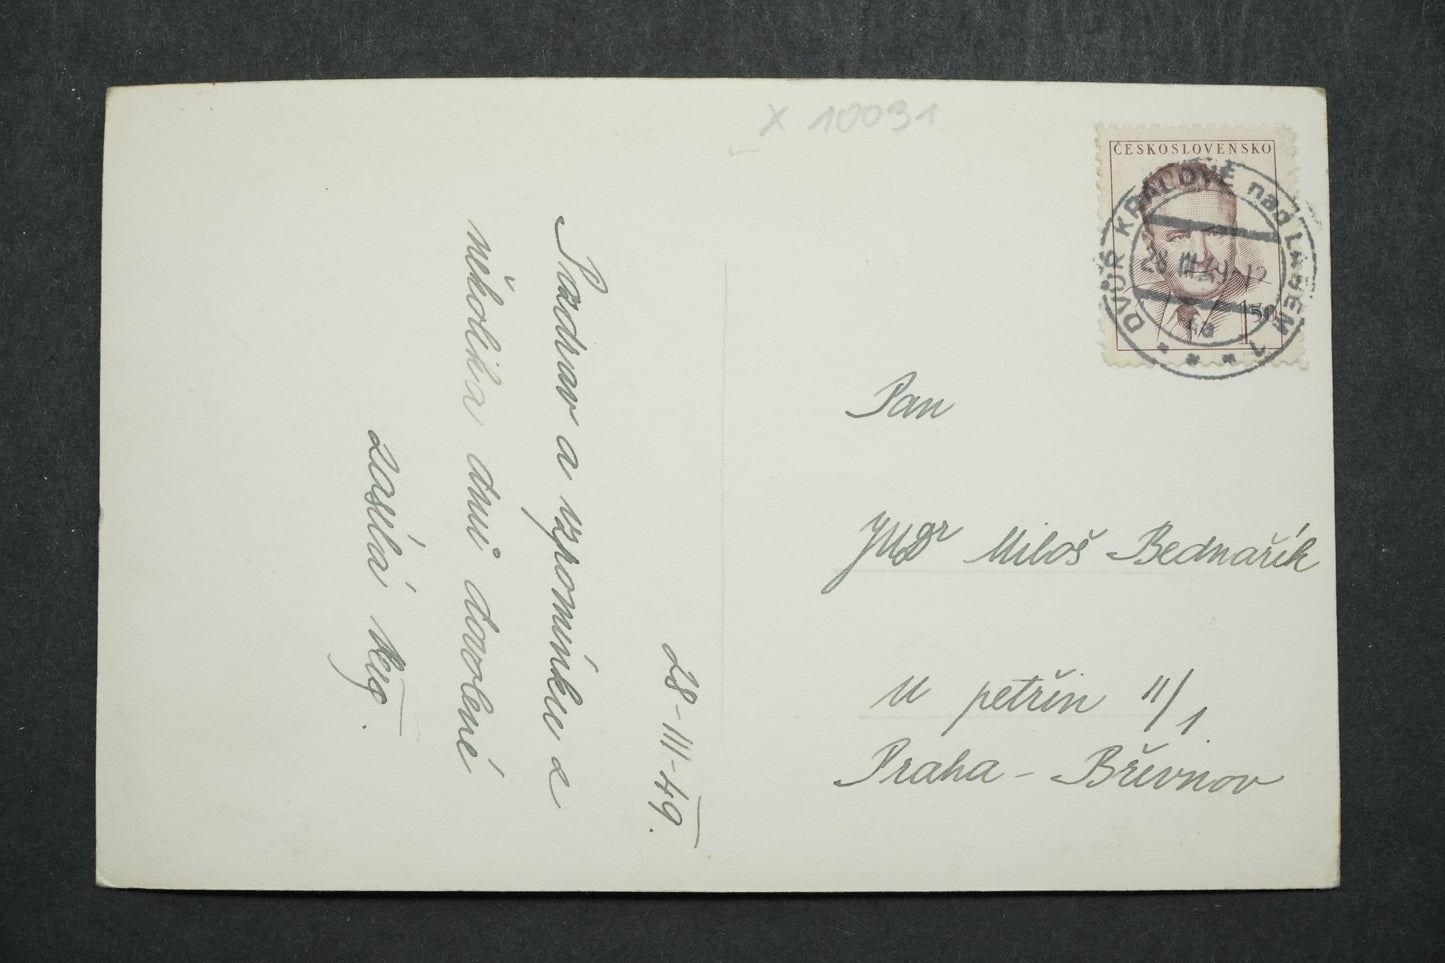 X 10091
ČESKOSLOVENSKO
DVŮR KRÁLOVÉ nad LABEM 1
28. III. 49-12
6a
1 50
28-III-49.
Pozdrav a vzpomínku z
několika dnů dovolené
zasílá
Pan
JUDr Miloš Bednařík
U petřin 11/1.
Praha - Břevnov